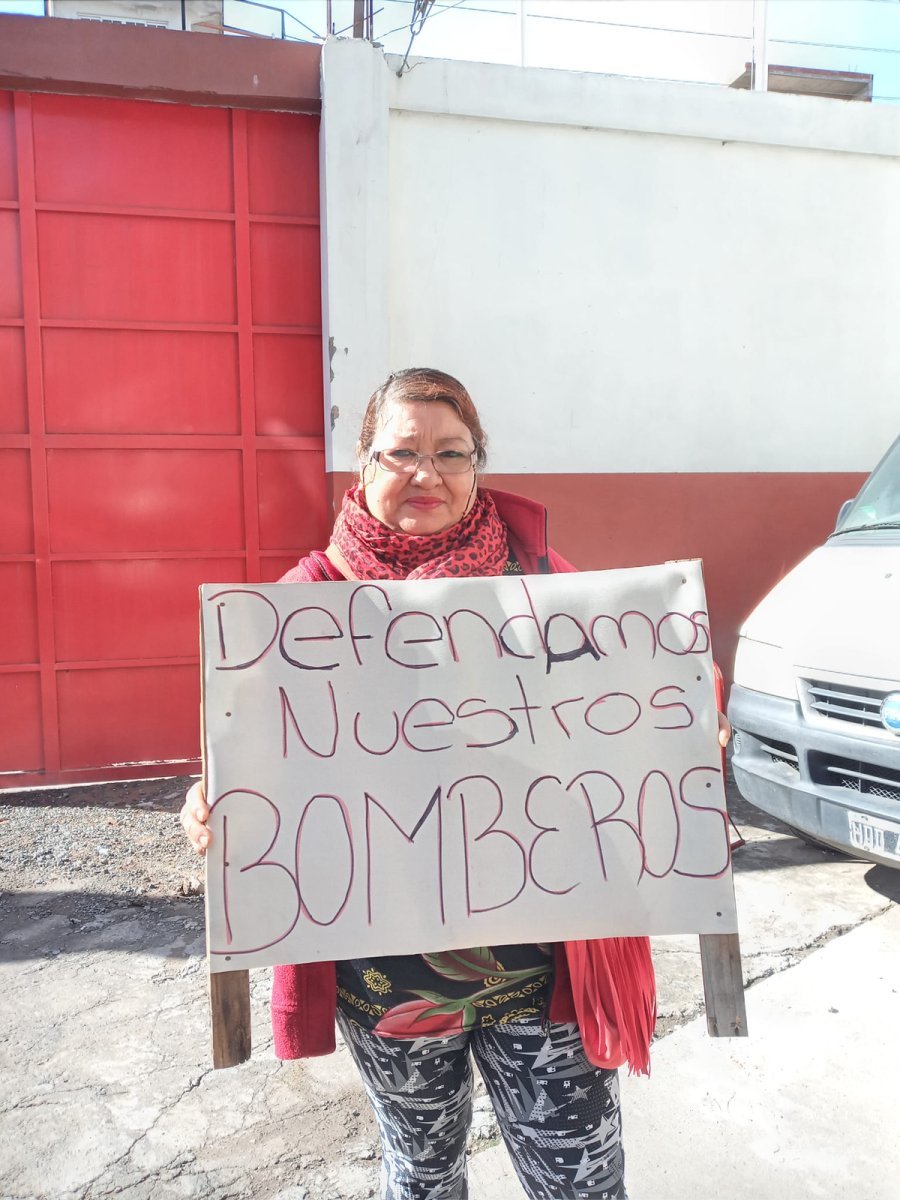 Defendamos
Nuestros
BOMBEROS